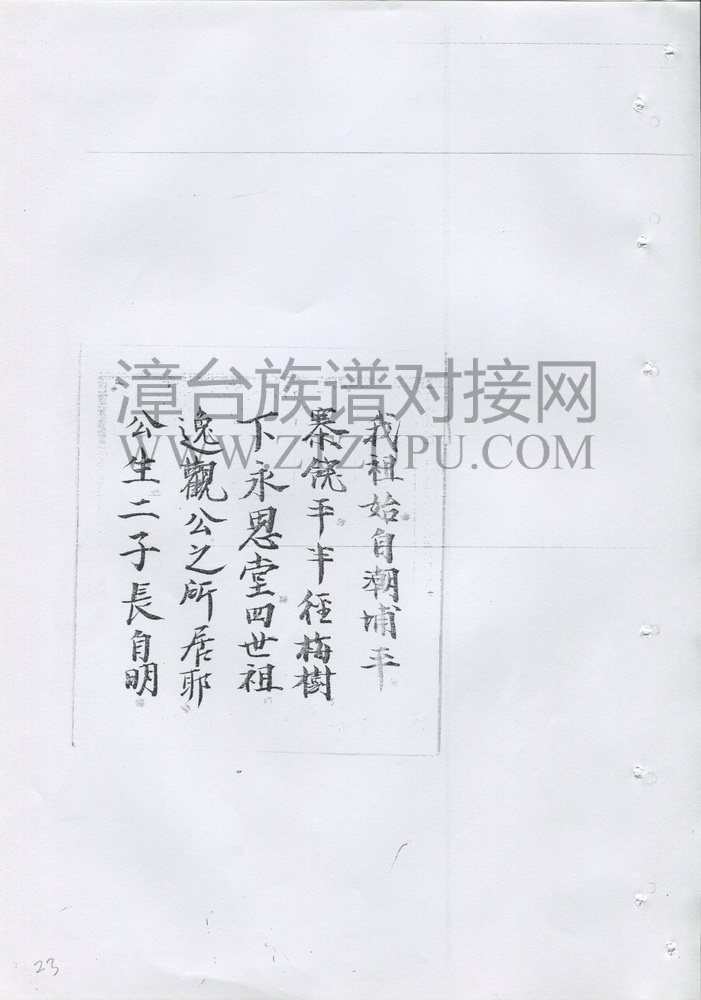 我祖始自潮埔平
寨饒平半徑梅樹
下永恩堂四世祖
逸觀公之所居耶
公生二子長自明
漳台族谱对接网
WWW.ZTZUPU.COM
23